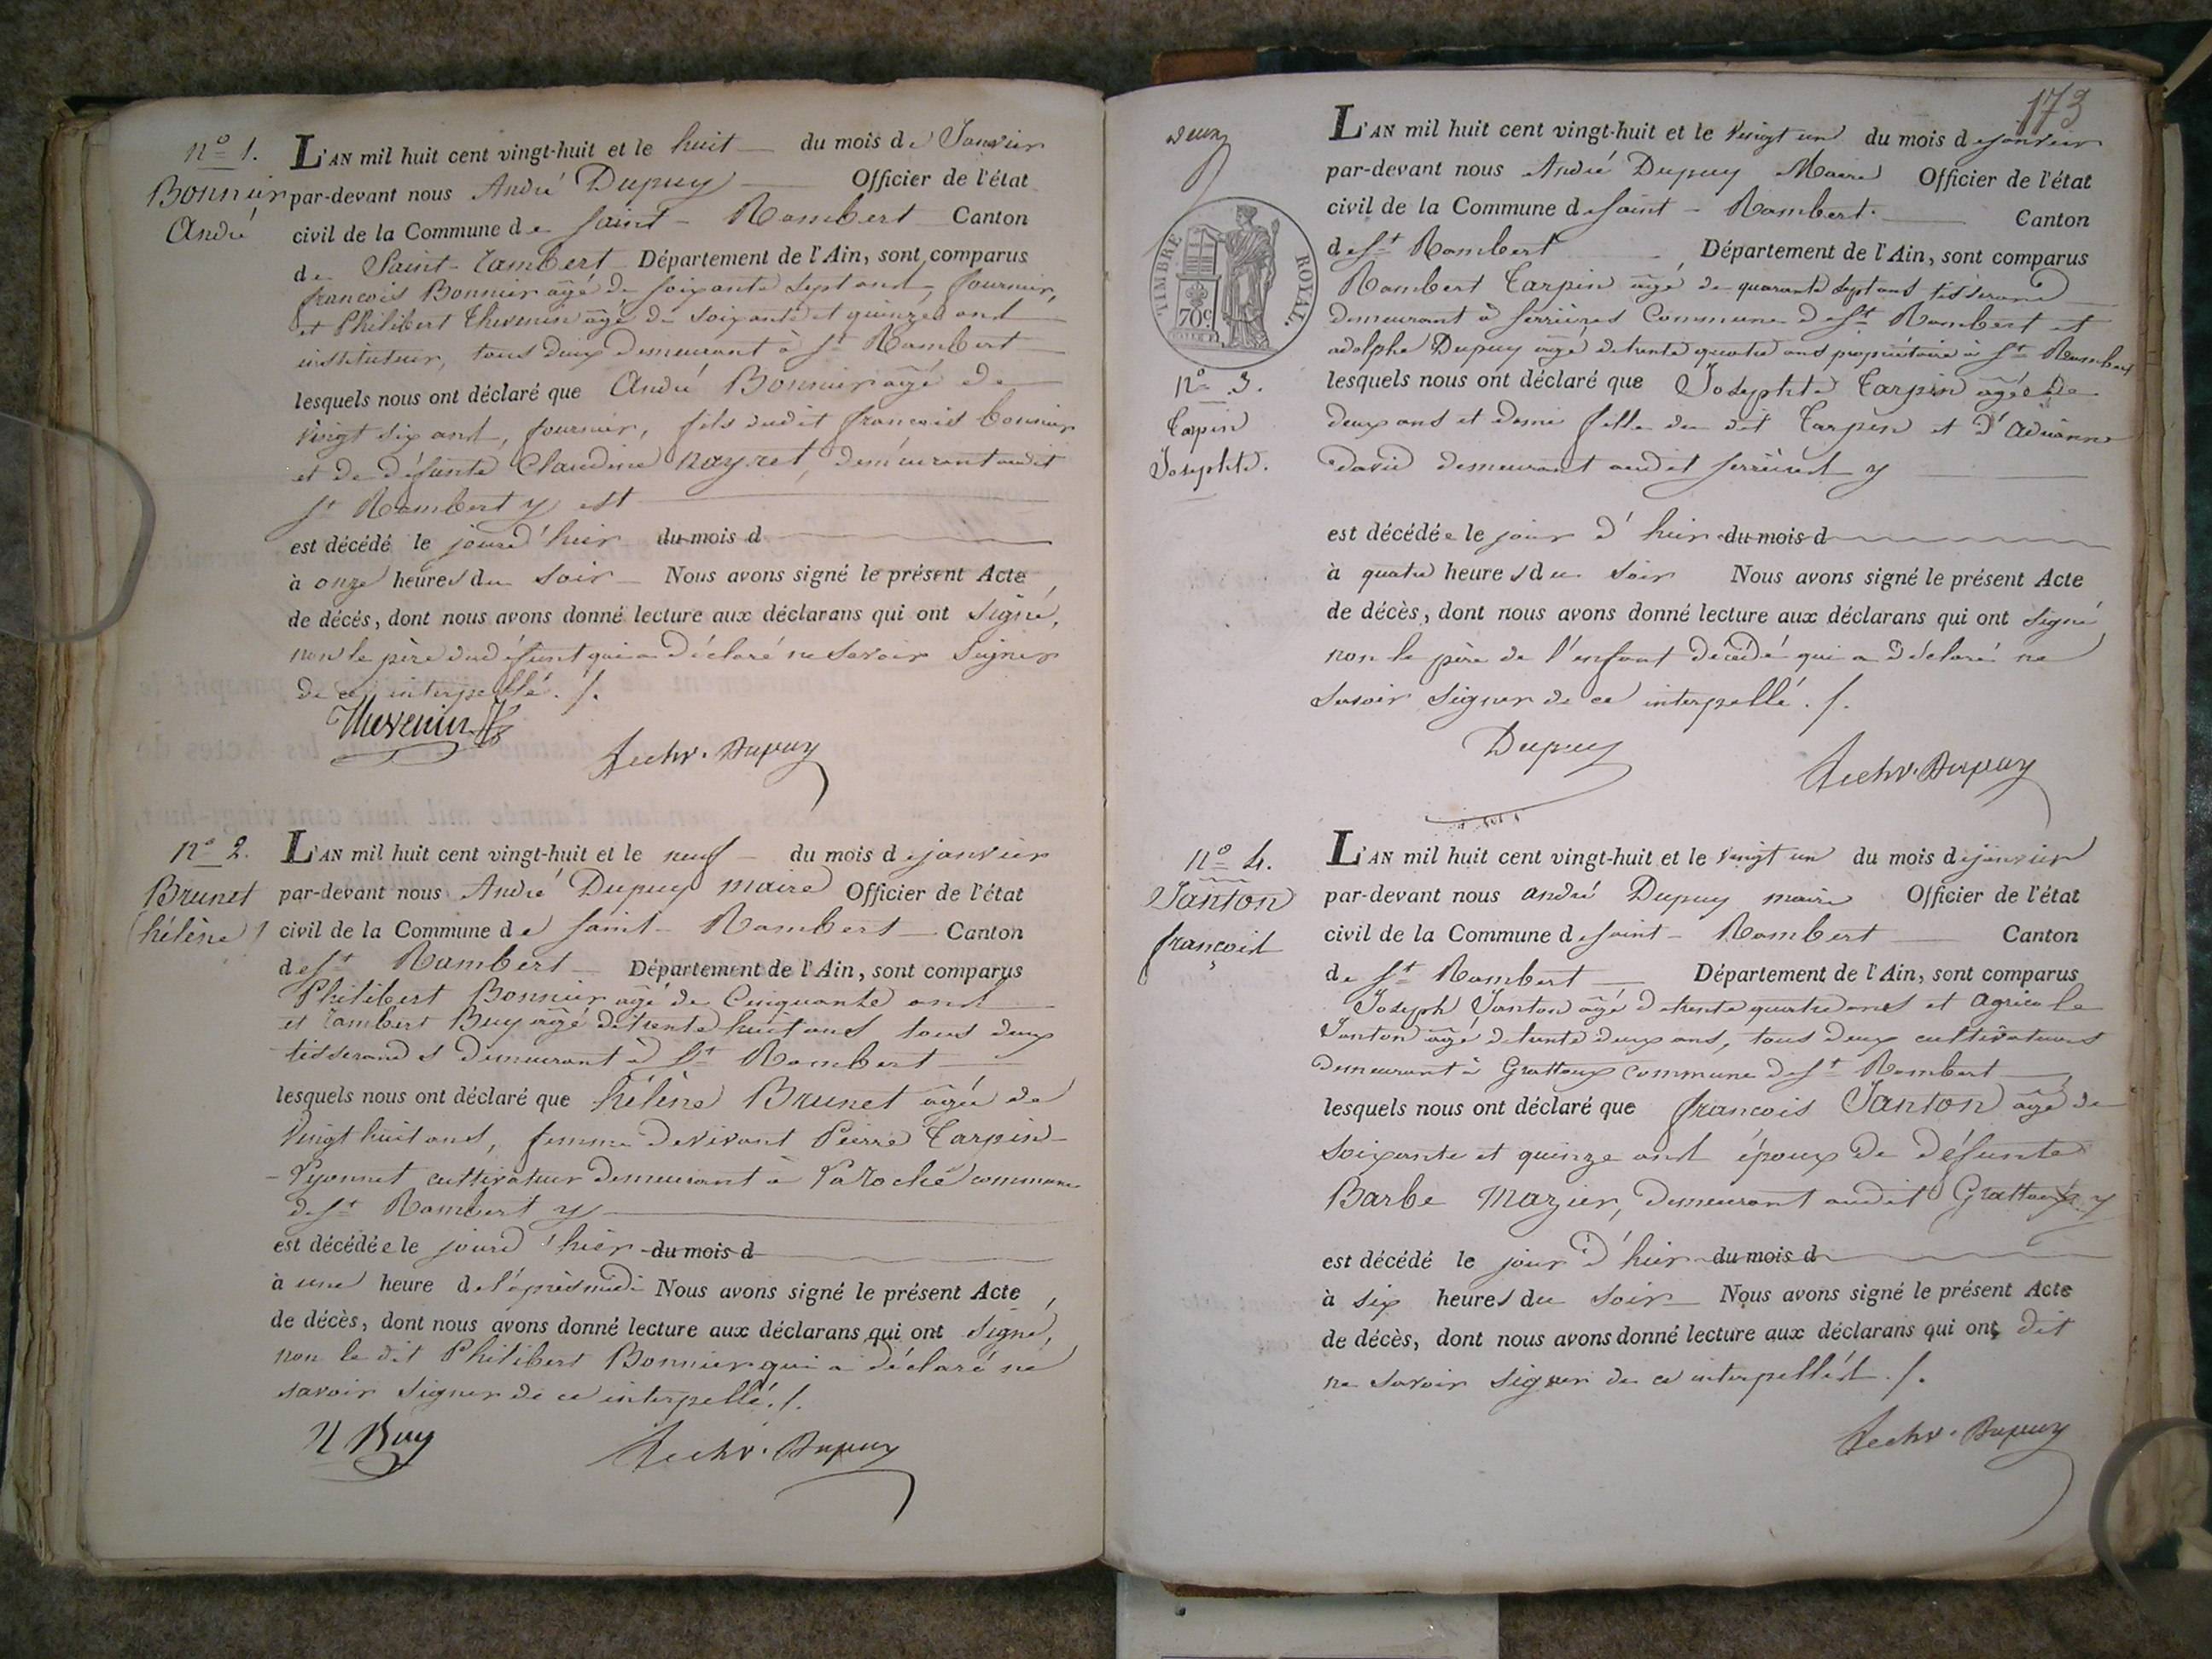 n° 1.
Bonnier
André
L'AN mil huit cent vingt-huit et le huit du mois de Janvier
par-devant nous André Dupuy Officier de l'état
civil de la Commune de Saint-Rambert Canton
de Saint-Rambert Département de l'Ain, sont comparus
françois Bonnier âgé de soixante sept ans, fournier,
et Philibert Thevenin âgé de soixante et quinze ans
instituteur, tous deux demeurant à St Rambert
lesquels nous ont déclaré que André Bonnier âgé de
vingt six ans, fournier, fils dudit françois bonnier
et de défunte Claudine Nayret, demeurant audit
St Rambert y est
est décédé le jourd'hier du mois d
à onze heures du soir Nous avons signé le présent Acte
de décès, dont nous avons donné lecture aux déclarans qui ont signé,
non le père du défunt qui a déclaré ne savoir signer
de ce interpellé ./.
Thevenin
Dupuy
n° 2.
Brunet
(hélène)
L'AN mil huit cent vingt-huit et le neuf du mois de janvier
par-devant nous André Dupuy maire Officier de l'état
civil de la Commune de Saint-Rambert Canton
de St Rambert Département de l'Ain, sont comparus
Philibert Bonnier âgé de Cinquante ans
et Rambert Buy âgé de trente huit ans tous deux
tisserands demeurant à St Rambert
lesquels nous ont déclaré que hélène Brunet âgée de
vingt huit ans, femme de vivant Pierre Tarpin-
-Vyonnet cultivateur demeurant à Laroche commune
de St Rambert y
est décédée le jourd'hier du mois d
à une heure de l'après midi Nous avons signé le présent Acte
de décès, dont nous avons donné lecture aux déclarans qui ont signé,
non le dit Philibert Bonnier qui a déclaré ne
savoir signer de ce interpellé ./.
R Buy
Dupuy
173
deux
TIMBRE ROYAL.
70c
n° 3.
Tarpin
Josephte.
L'AN mil huit cent vingt-huit et le vingt un du mois de janvier
par-devant nous André Dupuy Maire Officier de l'état
civil de la Commune de Saint-Rambert. Canton
de St Rambert Département de l'Ain, sont comparus
Rambert Tarpin âgé de quarante sept ans tisserand
demeurant à serrières Commune de St Rambert et
adolphe Dupuy âgé de trente quatre ans propriétaire à St Rambert
lesquels nous ont déclaré que Josephte Tarpin âgée de
deux ans et demi fille du dit Tarpin et d'
david demeurant audit serrières y
est décédée le jour d'hier du mois d
à quatre heures du soir Nous avons signé le présent Acte
de décès, dont nous avons donné lecture aux déclarans qui ont signé
non le père de l'enfant décédé qui a déclaré ne
savoir signer de ce interpellé ./.
Dupuy
Dupuy
n° 4.
Janton
françois
L'AN mil huit cent vingt-huit et le vingt un du mois de janvier
par-devant nous andré Dupuy maire Officier de l'état
civil de la Commune de Saint-Rambert Canton
de St Rambert Département de l'Ain, sont comparus
Joseph Janton âgé de trente quatre ans et Agricole
Janton âgé de trente deux ans, tous deux cultivateurs
demeurant à Grattoux commune de St Rambert
lesquels nous ont déclaré que françois Janton âgé de
soixante et quinze ans époux de défunte
Barbe Mazier, demeurant audit Grattoux y
est décédé le jour d'hier du mois d
à six heures du soir Nous avons signé le présent Acte
de décès, dont nous avons donné lecture aux déclarans qui ont dit
ne savoir signer de ce interpellés ./.
Dupuy